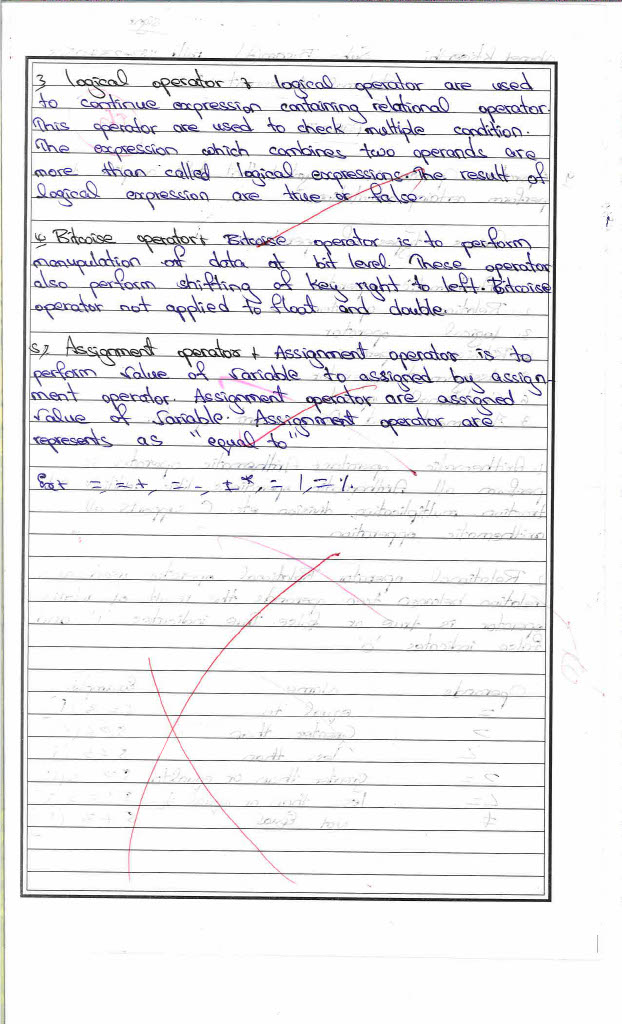 3 logical operator → logical operator are used
to continue expression containing relational operator.
This operator are used to check multiple condition.
The expression which combines two operands are
more than called logical expressions. The result of
logical expression are true or false
4 Bitwise operator: Bitwise operator is to perform
manupulation of data at bit level. These operator
also perform shifting of key right to left. Bitwise
operator not applied to float and double.
5, Assignment operator → Assignment operator is to
perform value of variable to assigned by assign-
ment operator. Assignment operator are assigned
value of variable. Assignment operator are
represents as "equal to"
=, =+, =-, =/, =%